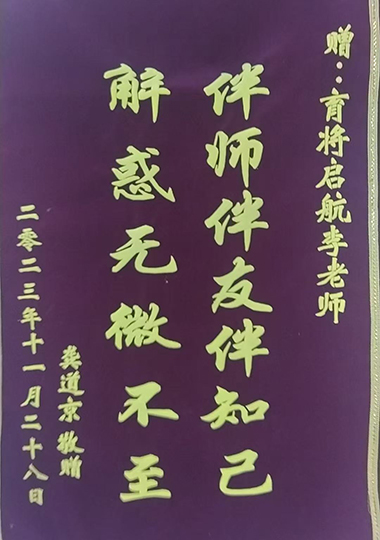 赠：育将启航李老师
伴师伴友伴知己
解惑无微不至
龚道京敬赠
二零二三年十一月二十八日